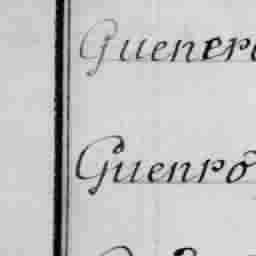 Guenero
Guenrõ